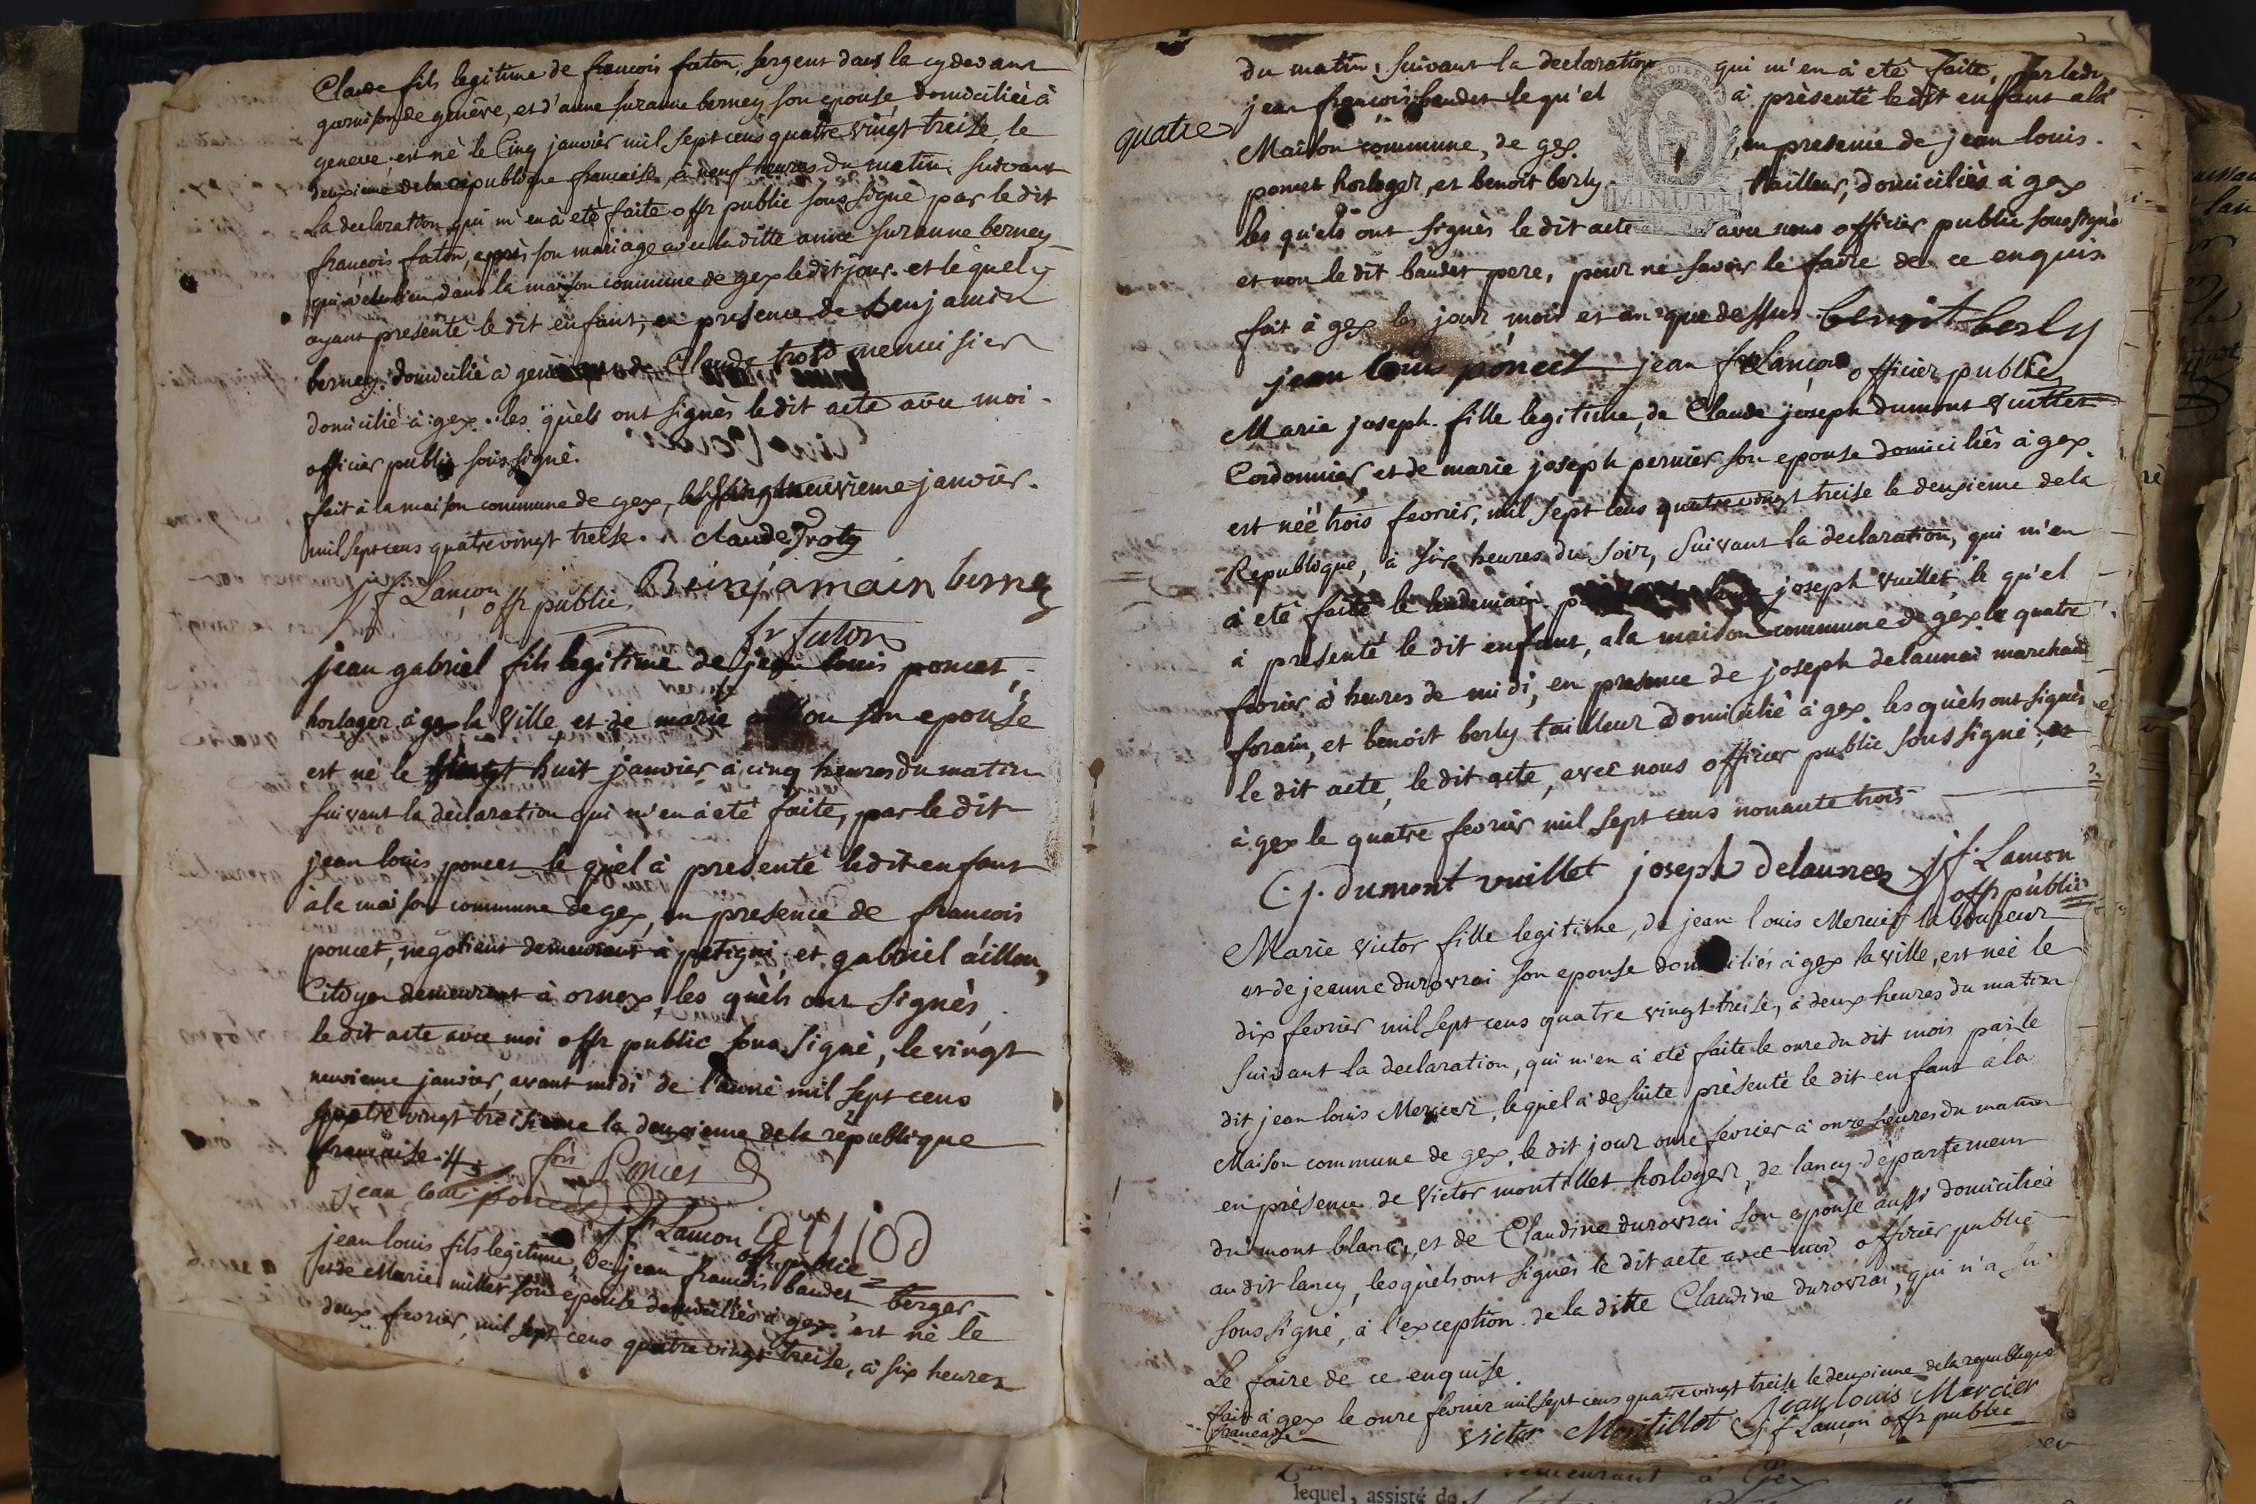 Claude fils legitime de francois faton, sergent dans la cy devant
garnison de genève, et d'anne suzanne berney son epouse, domiciliée à
geneve est nè le Cinq janvier mil sept cens quatre vingt treise, le
deuxieme de la republique francaise, à neuf heures du matin, suivant
la declaration qui m'en à etè faite offr public sous signè par le dit
francois faton, après son mariage avec la ditte anne suzanne berney
qui à eu lieu dans la maison commune de gex le dit jour. et le quel
ayant presentè le dit enfant, en presence de benjamin
berney domiciliè à genève de Claude troty menuisier
domicilié à gex. les quèls ont signès le dit acte avec moi
officier public sous signè.
fait à la maison commune de gex, le vingt neuvieme janvier.
mil sept cens quatre vingt treise. claude Troty
jf. Lançon offr public. Beinjamain berney
fr faton
jean gabriel fils legitime de jean louis poncet,
horloger à gex la ville et de marie aillou son epouse
est né le vingt huit janvier à cinq heures du matin
suivant la dèclaration qui m'en à etè faite, par le dit
jean louis poncet le quèl à presentè le dit enfant
à la maison commune de gex, en presence de francois
poncet, negotiant demeurant à petigni, et gabriel aillou,
Citoyen demeurant à ornex, les quèls ont signès,
le dit acte avec moi offr public sous signè, le vingt
neuvieme janvier, avant midi de l'année mil sept cens
quatre vingt treisieme la deuxieme de la rèpublique
francaise.
fois Poncet
jean loui poncet
jf Lancon offr public
jean louis fils legitime, de jean francois baudet berger
et de Marie millet son epouse domiciliès à gex. est nè le
deux fevrier, mil sept cens quatre vingt treise, à six heures
du matin, suivant la declaration qui m'en à eté faite, par ledit
jean francois baudet le qu'el à prèsentè le dit enfant a la
quatre
Maison commune, de gex, en presence de jean louis
poncet horloger, et benoit berly tailleur, domiciliès à gex
les qu'els ont signès le dit acte avec nous officier public sous signè
et non le dit baudet pere, pour ne savoir le faire de ce enquis.
fait à gex les jour, mois et an que dessus. benoit berly
jean louis poncet jean f Lançon officier public
Marie joseph fille legitime, de Claude joseph dumont vuillet
Cordonnier, et de marie joseph pernier son epouse domiciliès à gex
est nèè trois fevrier, mil sept cens quatre vingt treise le deuxieme de la
Republique, à six heures du soir, suivant la declaration, qui m'en
à etè faite le lendemain joseph vuillet, le qu'el
à presentè le dit enfant, a la maison commune de gex le quatre
fevrier à heures de midi, en presence de joseph delaunai marchand
forain, et benoit berly tailleur domiciliè à gex les quèls ont signès
le dit acte, le dit acte, avec nous officier public sous signè,
à gex le quatre fevrier mil sept cens nonante trois
C. j. dumont vuillet joseph delaunee jf. Lancon
offr public
Marie victor fille legitime, de jean louis Mercier laboureur
et de jeanne durovrai son epouse domiciliés à gex la ville, est neè le
dix fevrier mil sept cens quatre vingt treise, à deux heures du matin
suivant la declaration, qui m'en à etè faite le onze du dit mois par le
dit jean louis Mercier, le quel à de suite prèsentè le dit enfant à la
Maison commune de gex, le dit jour onze fevrier à onze heures du matin
en prèsence de Victor montillet horloger, de lancy departement
du mont blanc, et de Claudine durovrai son epouse aussi domiciliée
au dit lancy, les quèls ont signès le dit acte avec moi officier public
sous signè, à l'exception de la ditte Claudine durovrai, qui n'a su
le faire de ce enquise.
fait à gex le onze fevrier mil sept cens quatre vingt treise le deuxieme de la republique
francaise
jean louis Mercier
victor Montillet jf Lançon offr public
MINUTE
demeurant à Gex
lequel, assisté de